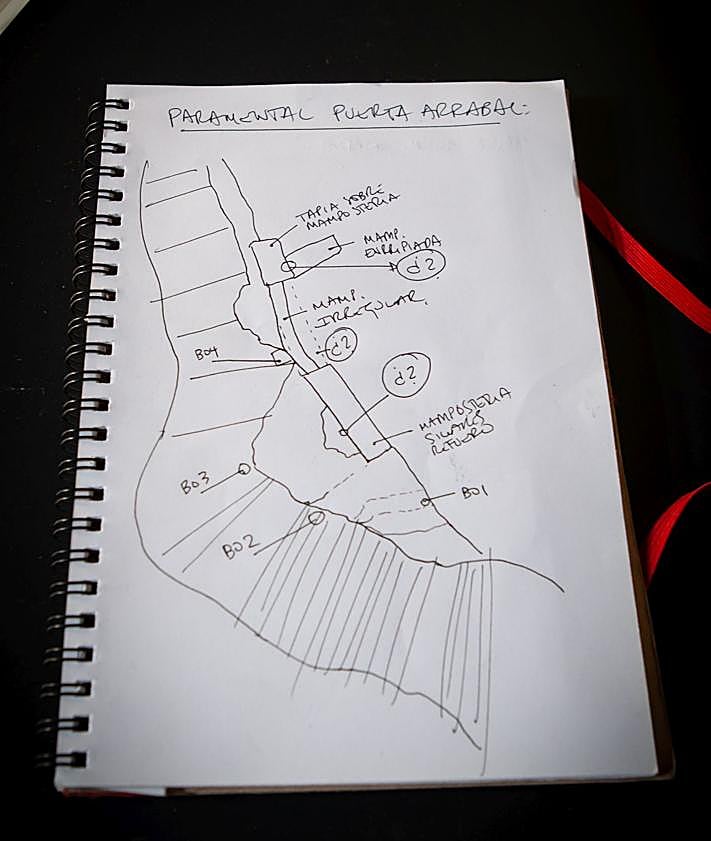 PARAMENTAL PUERTA ARRABAL:
TAPIA SOBRE
MAMPOSTERIA
MAMP.
ENRIPIADA
¿?
MAMP.
IRREGULAR.
¿?
B04
¿?
MAMPOSTERIA
SILLARES
REFUERZO
B03
B01
B02